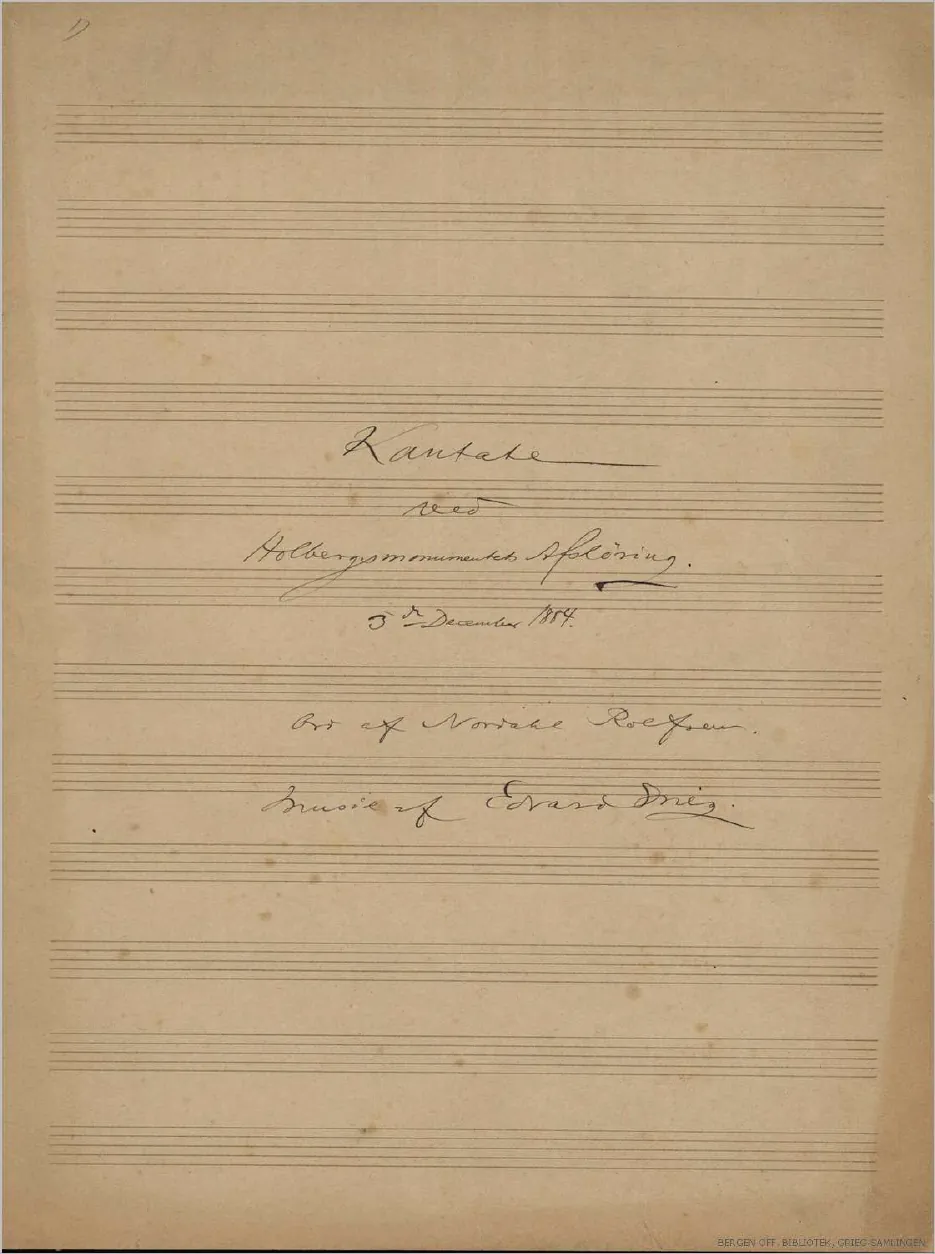 Kantate
ved
Holbergsmonumentets Afsløring.
3de December 1884.
Ord af Nordahl Rolfsen.
Musik af Edvard Grieg.
BERGEN OFF. BIBLIOTEK, GRIEG SAMLINGEN